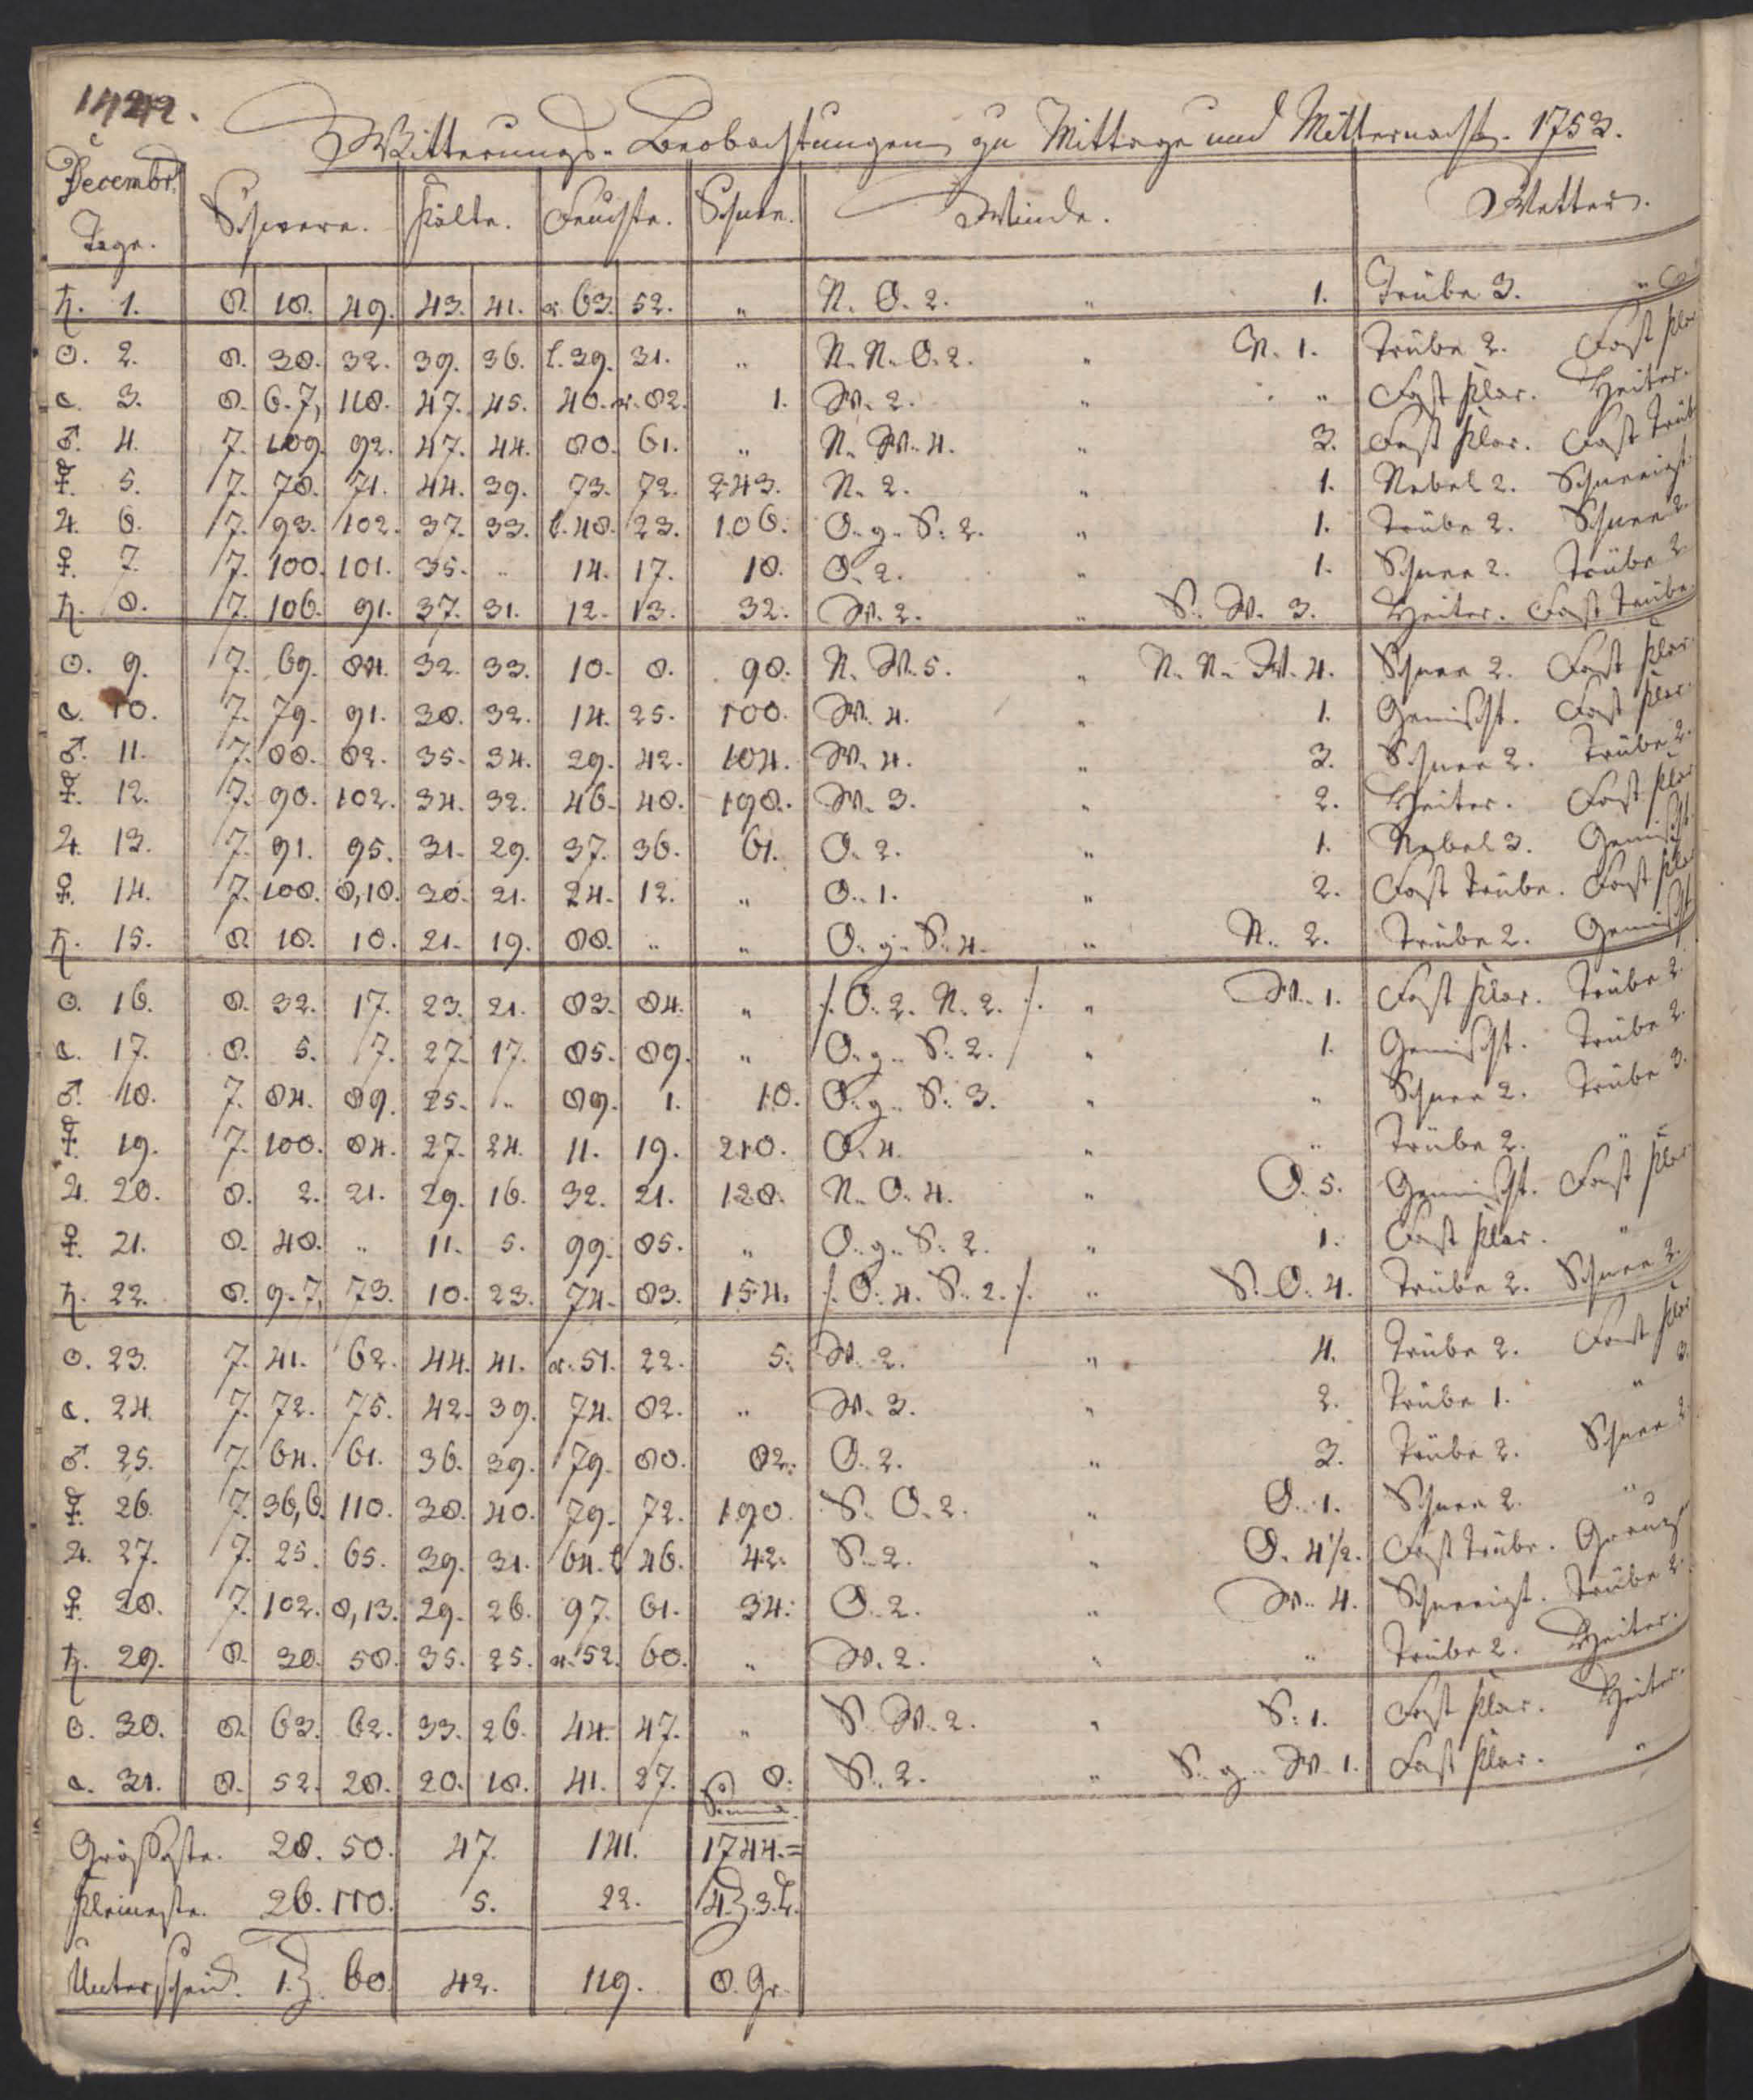 1742.
Witterungs-Beobachtungen zu Mittage und Mitternacht. 1753.
Decembr. Tage. Schwere. Kälte. Feuchte. Schnee. Winde. Wetter.
♄. 1. 8. 18. 49. 43. 41. r. 63. 52. " N. O. 2. " 1. Trübe 3. "
☉. 2. 8. 38. 32. 39. 36. l. 39. 31. " N. N. O. 2. " N. 1. Trübe 2. Fast klar
☾. 3. 8. 6. 7, 118. 47. 45. 40. r. 82. 1. W. 2. " " Fast klar. Heiter.
♂. 4. 7. 109. 92. 47. 44. 80. 61. " N. W. 4. " 3. Fast klar. Fast trüb
☿. 5. 7. 78. 71. 44. 39. 73. 72. 243. N. 2. " 1. Nebel 2. Schneeigt.
♃. 6. 7. 93. 102. 37. 33. l. 48. 23. 106. O. g. S. 2. " 1. Trübe 2. Schnee 2.
♀. 7. 7. 100. 101. 35. " 14. 17. 18. O. 2. " 1. Schnee 2. Trübe 2.
♄. 8. 7. 106. 91. 37. 31. 12. 13. 32. W. 2. " S. W. 3. Heiter. Fast trübe
☉. 9. 7. 69. 84. 32. 33. 10. 8. 98. N. W. 5. " N. N. W. 4. Schnee 2. Fast klar.
☾. 10. 7. 79. 91. 38. 32. 14. 25. 100. W. 4. " 1. Gemischt. Fast klar.
♂. 11. 7. 88. 82. 35. 34. 29. 42. 104. W. 4. " 3. Schnee 2. Trübe 2.
☿. 12. 7. 98. 102. 34. 32. 46. 48. 198. W. 3. " 2. Heiter. Fast klar
♃. 13. 7. 91. 95. 31. 29. 37. 36. 61. O. 2. " 1. Nebel 3. Gemischt.
♀. 14. 7. 108. 8, 18. 30. 21. 24. 12. " O. 1. " 2. Fast trübe. Fast klar
♄. 15. 8. 18. 10. 21. 19. 88. " " O. g. S. 4. " N. 2. Trübe 2. Gemischt
☉. 16. 8. 32. 17. 23. 21. 83. 84. " /. O. 2. N. 2. /. " W. 1. Fast klar. Trübe 2.
☾. 17. 8. 5. 7. 27. 17. 85. 89. " O. g. S. 2. " 1. Gemischt. Trübe 2.
♂. 18. 7. 84. 89. 25. " 89. 1. 10. O. g. S. 3. " " Schnee 2. Trübe 3.
☿. 19. 7. 100. 84. 27. 24. 11. 19. 210. O. 4. " " Trübe 2. "
♃. 20. 8. 2. 21. 29. 16. 32. 21. 128. N. O. 4. " O. 5. Gemischt. Fast klar
♀. 21. 8. 48. " 11. 5. 99. 85. " O. g. S. 2. " 1. Fast klar. "
♄. 22. 8. 9. 7, 73. 10. 23. 74. 83. 154. /. O. 4. S. 2. /. " S. O. 4. Trübe 2. Schnee 2.
☉. 23. 7. 41. 62. 44. 41. r. 51. 22. 5. W. 2. " 4. Trübe 2. Fast klar
☾. 24. 7. 72. 75. 42. 39. 74. 82. " W. 3. " 2. Trübe 1. " 3.
♂. 25. 7. 64. 61. 36. 39. 79. 80. 82. O. 2. " 3. Trübe 2. Schnee 2.
☿. 26. 7. 36, 6. 110. 38. 40. 79. 72. 190. S. O. 2. " O. 1. Schnee 2. "
♃. 27. 7. 25. 65. 39. 31. 64. l. 46. 42. S. 2. " O. 4½. Fast trübe.
♀. 28. 7. 102. 8, 13. 29. 26. 97. 61. 34. O. 2. " W. 4. Schneeigt. Trübe 2.
♄. 29. 8. 30. 58. 35. 25. r. 52. 60. " W. 2. " " Trübe 2. Heiter.
☉. 30. 8. 63. 62. 33. 26. 44. 47. " S. W. 2. " S. 1. Fast klar. Heiter.
☾. 31. 8. 52. 28. 20. 18. 41. 27. 8. S. 2. " S. g. W. 1. Fast klar. "
Summa
Größeste. 28. 50. 47. 141. 1744. =
Kleineste. 26. 110. 5. 22. 4. Z. 3. L.
Unterscheid. 1. Z. 60. 42. 119. 8. Gr.